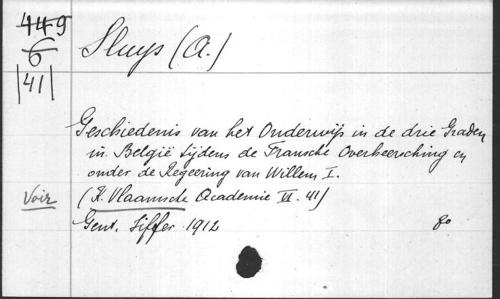 449
6
|41|
Sluys (A.)
Geschiedenis van het Onderwijs in de drie Graden
in België tijdens de Fransche Overheersching en
onder de Regeering van Willem I.
Voir
(K. Vlaamsche Academie VI. 41)
Gent. Siffer 1912
8o